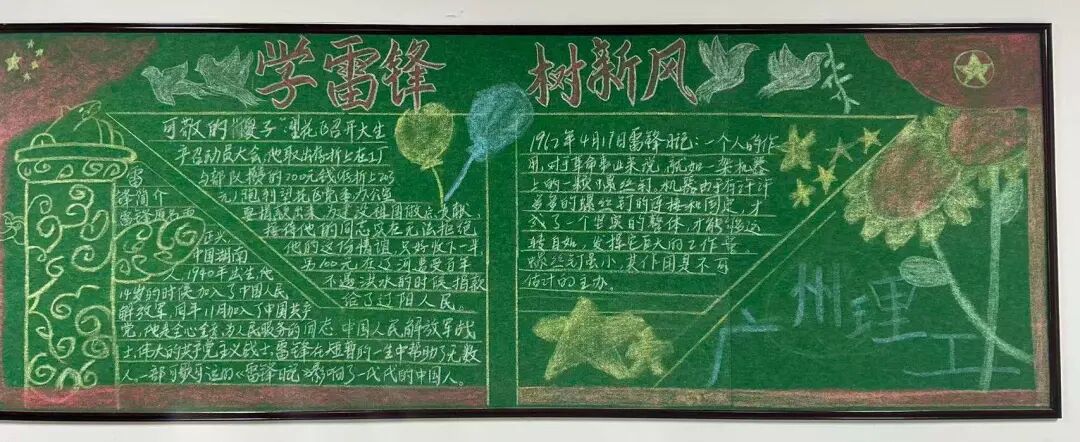 学雷锋 树新风
可敬的“傻子”望花区召开大生
产召动员大会，他取出存折上在工厂
与部队攒的200元钱(存折上203
元)跑到望花区党委办公室
要捐献出来，为建设祖国做点贡献，
接待他的同志实在无法拒绝
他的这份情谊，只好收下一半
另100元在辽河遭受百年
不遇洪水的时候捐献
给了辽阳人民。
雷
锋简介
雷锋原名雷
正兴
中国湖南
人，1940年出生，他
14岁的时候加入了中国人民
解放军，同年11月加入了中国共产
党，他是全心全意为人民服务的同志，中国人民解放军战
士，伟大的共产党主义战士，雷锋在短暂的一生中帮助了无数
人。一部可歌可泣的《雷锋日记》影响了一代代的中国人。
1962年4月17日雷锋日记：一个人的作
用，对于革命事业来说，就如一架机器
上的一颗螺丝钉，机器由于有许许
多多的螺丝钉的连接和固定，才
成了一个坚实的整体，才能够运
转自如，发挥它巨大的工作量
螺丝钉虽小，其作用是不可
估计的
广州理工